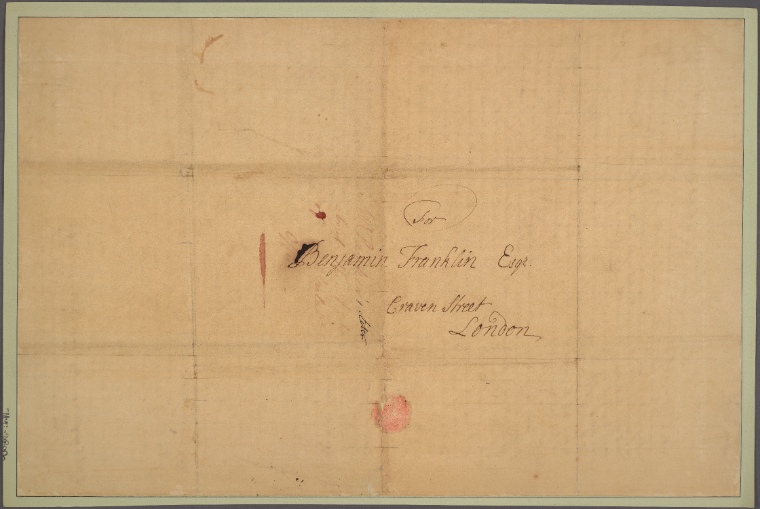 For
Benjamin Franklin Esqr.
Craven Street
London